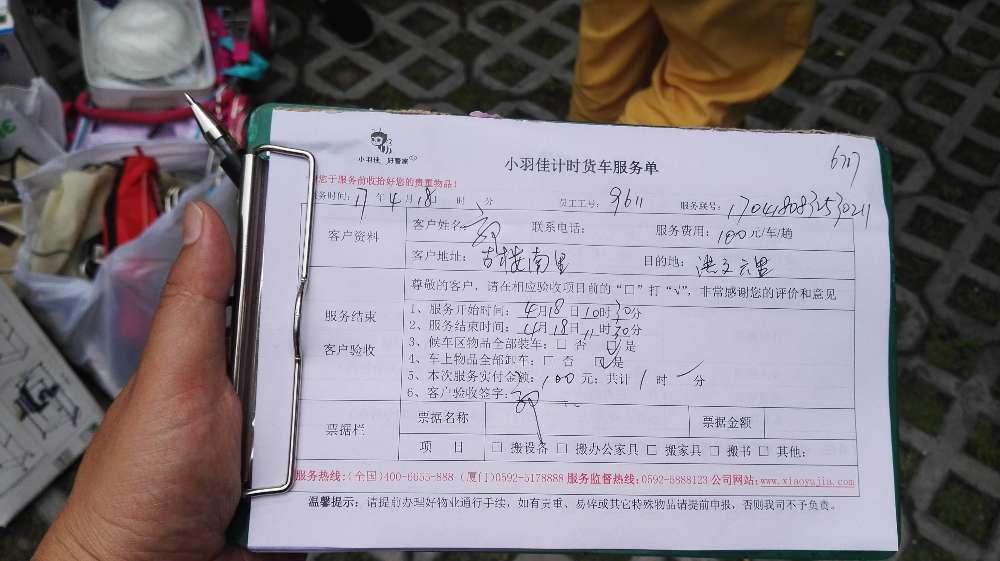 小羽佳 好管家
小羽佳计时货车服务单
6717
您于服务前收拾好您的贵重物品！
服务时间：17 年 4 月 18 日 时 分 员工工号：9611 服务账号：
客户资料
客户姓名 联系电话： 服务费用：100元/车/趟
客户地址：古楼南里 目的地：洪文六里
尊敬的客户，请在相应验收项目前的“□”打“√”，非常感谢您的评价和意见
服务结束
客户验收
1、服务开始时间：4月18日10时30分
2、服务结束时间：4月18日11时30分
3、候车区物品全部装车：□ 否 ☑ 是
4、车上物品全部卸车：□ 否 ☑ 是
5、本次服务实付金额：100元；共计 1 时 分
6、客户验收签字：
票据栏
票据名称 票据金额
项 目 □ 搬设备 □ 搬办公家具 □ 搬家具 □ 搬书 □ 其他：
服务热线：(全国)400-6655-888 (厦门)0592-5178888 服务监督热线：0592-5888123 公司网站：www.xiaoyujia.com
温馨提示：请提前办理好物业通行手续，如有贵重、易碎或其它特殊物品请提前申报，否则我司不予负责。